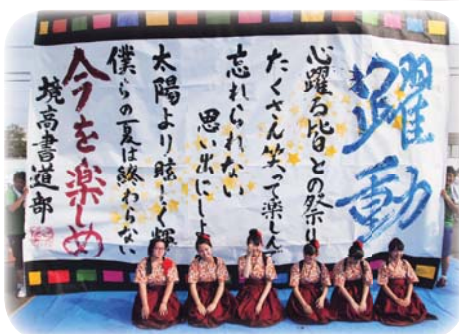 躍動
心躍る皆との祭り
たくさん笑って楽しんで
忘れられない
思い出にしよ
太陽より眩しく輝
僕らの夏は終わらない
今を楽しめ
境高書道部